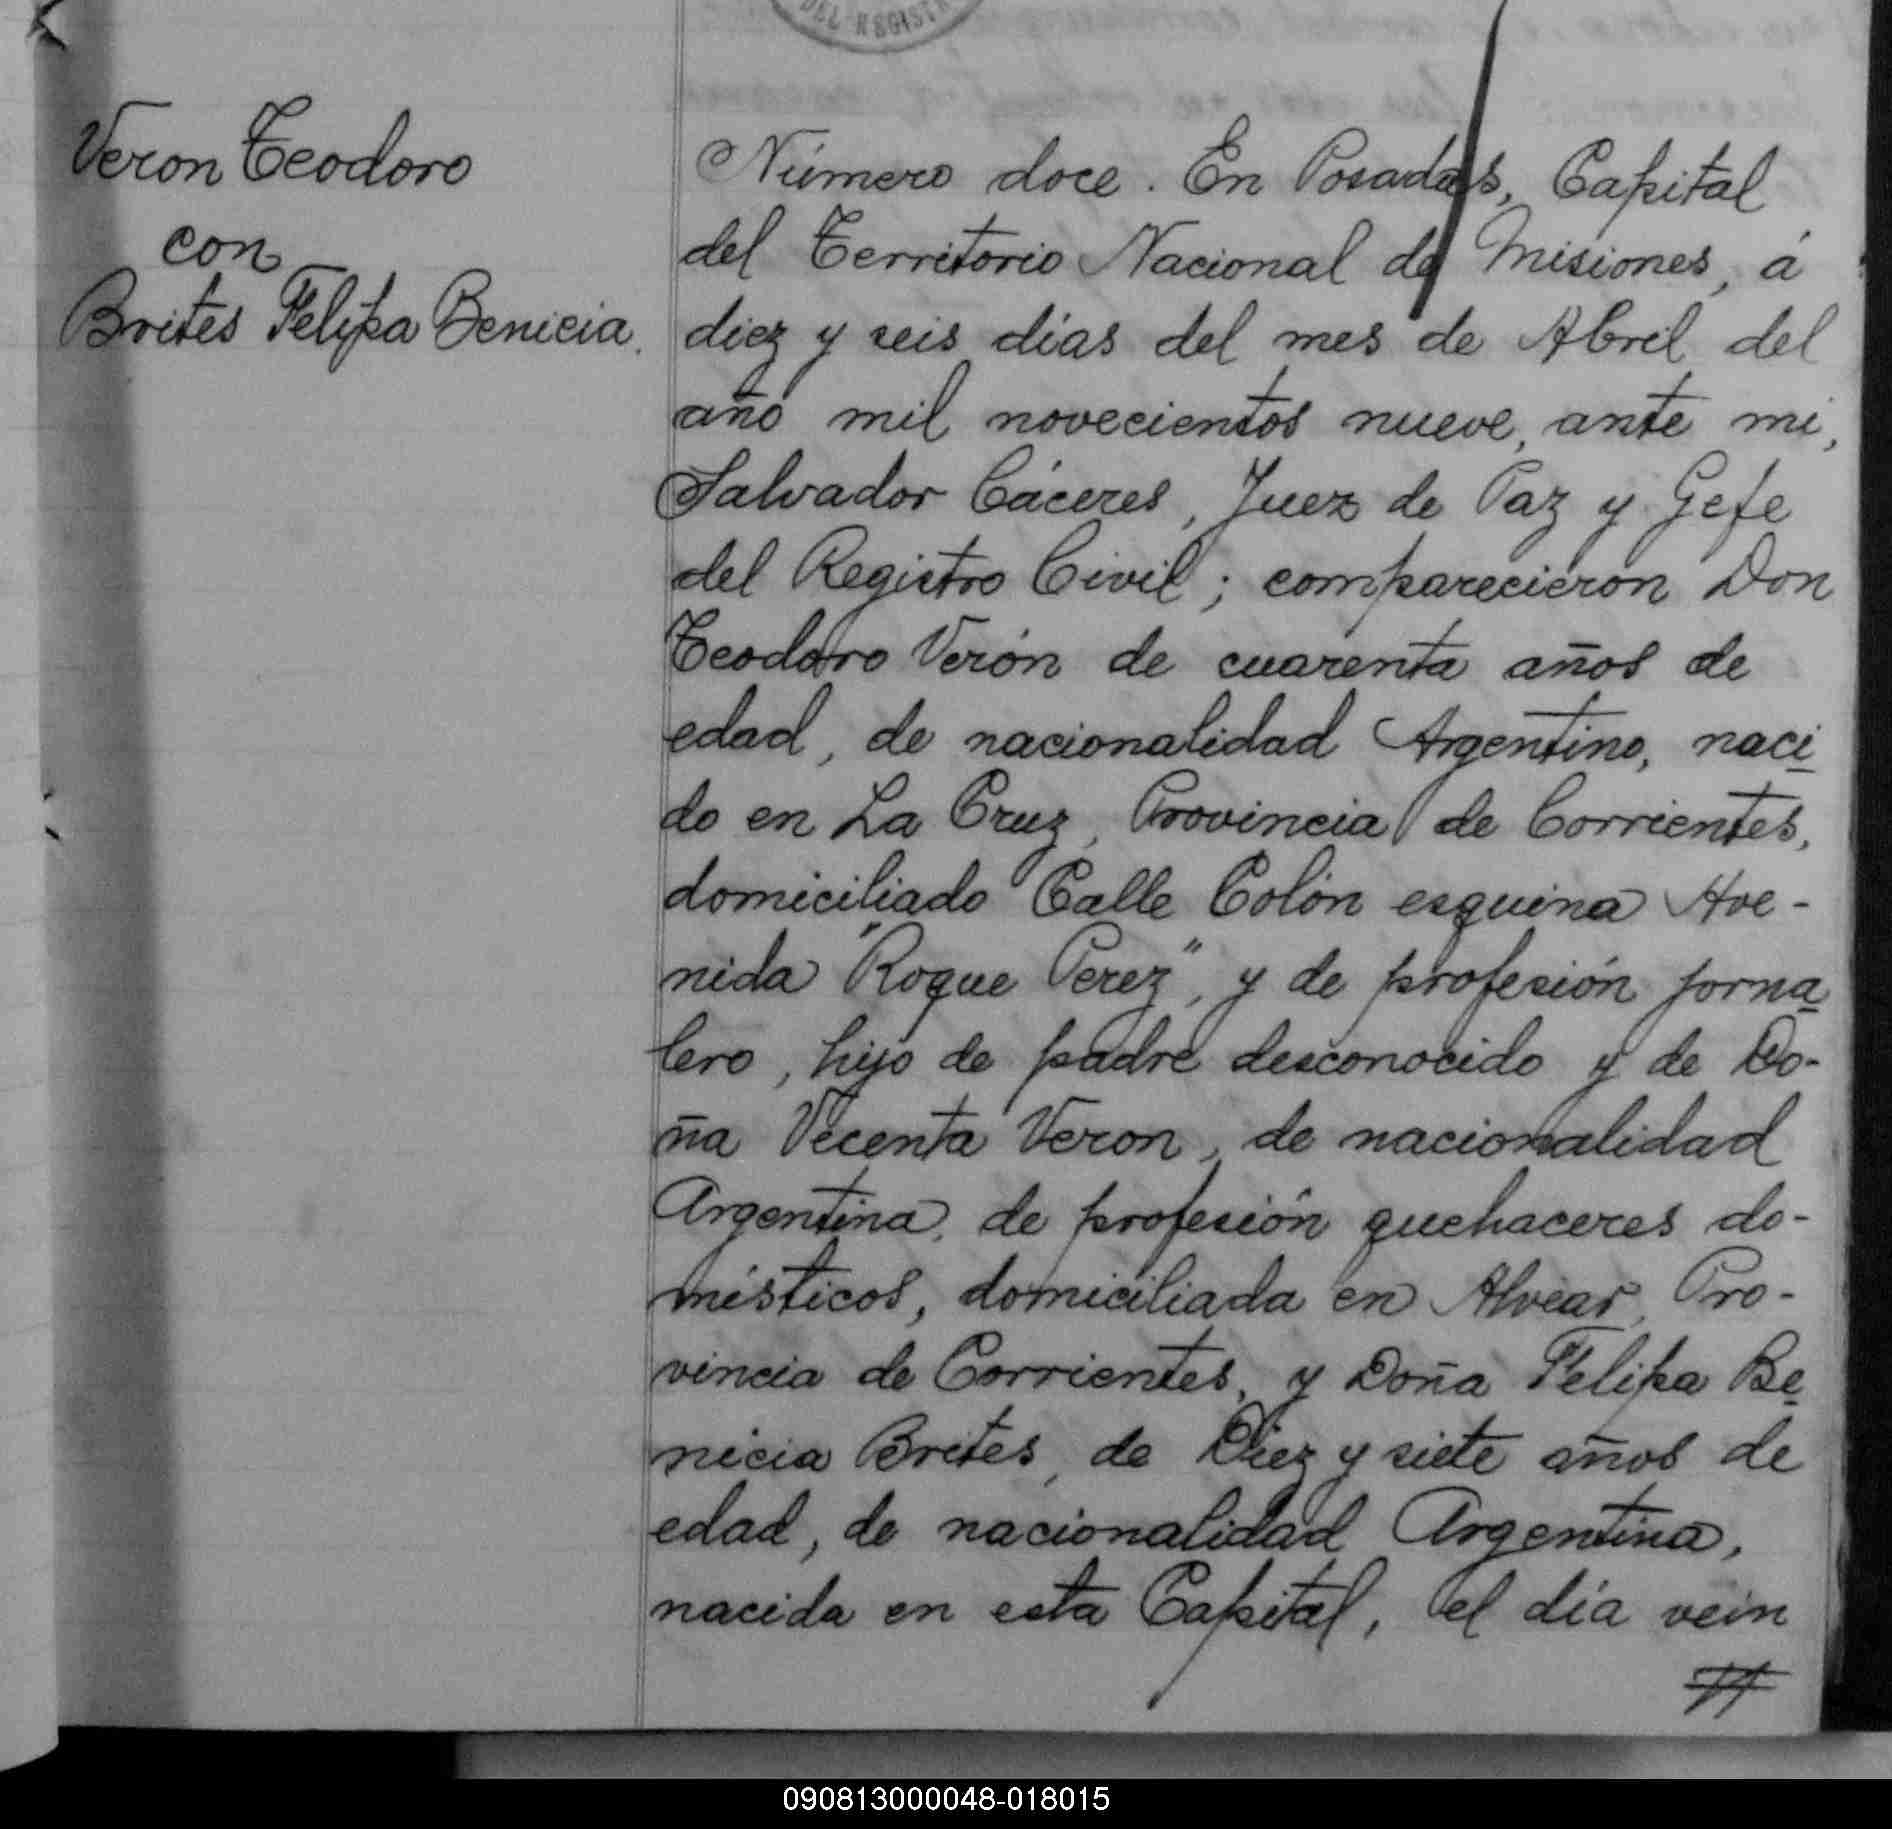 DEL REGIST
Veron Teodoro
con
Brites Felipa Benicia.
Número doce. En Posadas, Capital
del Territorio Nacional de Misiones, á
diez y seis días del mes de Abril del
año mil novecientos nueve, ante mi,
Salvador Cáceres, Juez de Paz y Gefe
del Registro Civil; comparecieron Don
Teodoro Verón de cuarenta años de
edad, de nacionalidad Argentino, naci
do en La Cruz, Provincia de Corrientes,
domiciliado Calle Colón esquina Ave-
nida "Roque Perez", y de profesión jorna
lero, hijo de padre desconocido y de Do-
ña Vicenta Veron, de nacionalidad
Argentina, de profesión quehaceres do-
mésticos, domiciliada en Alvear, Pro-
vincia de Corrientes, y Doña Felipa Be
nicia Brites, de Diez y siete años de
edad, de nacionalidad Argentina,
nacida en esta Capital, el día vein
090813000048-018015